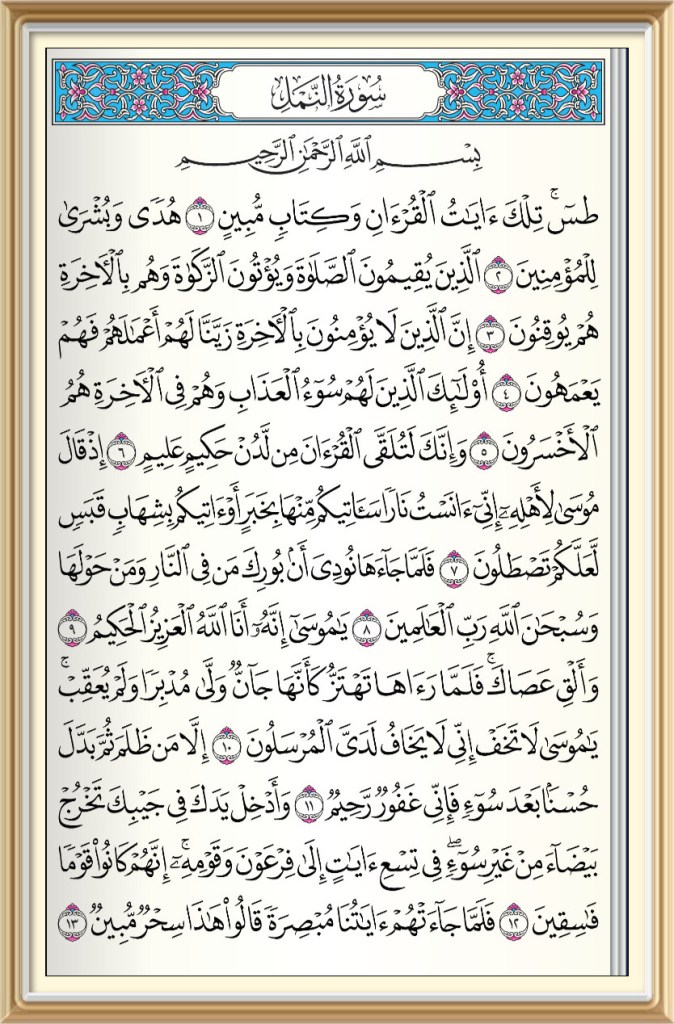 سُورَةُ النَّمْلِ
بِسْمِ ٱللَّهِ ٱلرَّحْمَٰنِ ٱلرَّحِيمِ
طسٓ ۚ تِلْكَ ءَايَٰتُ ٱلْقُرْءَانِ وَكِتَابٍ مُّبِينٍ ١ هُدًى وَبُشْرَىٰ
لِلْمُؤْمِنِينَ ٢ ٱلَّذِينَ يُقِيمُونَ ٱلصَّلَوٰةَ وَيُؤْتُونَ ٱلزَّكَوٰةَ وَهُم بِٱلْأَخِرَةِ
هُمْ يُوقِنُونَ ٣ إِنَّ ٱلَّذِينَ لَا يُؤْمِنُونَ بِٱلْأَخِرَةِ زَيَّنَّا لَهُمْ أَعْمَٰلَهُمْ فَهُمْ
يَعْمَهُونَ ٤ أُو۟لَٰٓئِكَ ٱلَّذِينَ لَهُمْ سُوٓءُ ٱلْعَذَابِ وَهُمْ فِى ٱلْأَخِرَةِ هُمُ
ٱلْأَخْسَرُونَ ٥ وَإِنَّكَ لَتُلَقَّى ٱلْقُرْءَانَ مِن لَّدُنْ حَكِيمٍ عَلِيمٍ ٦ إِذْ قَالَ
مُوسَىٰ لِأَهْلِهِۦٓ إِنِّىٓ ءَانَسْتُ نَارًا سَـَٔاتِيكُم مِّنْهَا بِخَبَرٍ أَوْ ءَاتِيكُم بِشِهَابٍ قَبَسٍ
لَّعَلَّكُمْ تَصْطَلُونَ ٧ فَلَمَّا جَآءَهَا نُودِىَ أَنۢ بُورِكَ مَن فِى ٱلنَّارِ وَمَنْ حَوْلَهَا
وَسُبْحَٰنَ ٱللَّهِ رَبِّ ٱلْعَٰلَمِينَ ٨ يَٰمُوسَىٰٓ إِنَّهُۥٓ أَنَا ٱللَّهُ ٱلْعَزِيزُ ٱلْحَكِيمُ ٩
وَأَلْقِ عَصَاكَ ۚ فَلَمَّا رَءَاهَا تَهْتَزُّ كَأَنَّهَا جَآنٌّ وَلَّىٰ مُدْبِرًا وَلَمْ يُعَقِّبْ ۚ
يَٰمُوسَىٰ لَا تَخَفْ إِنِّى لَا يَخَافُ لَدَىَّ ٱلْمُرْسَلُونَ ١٠ إِلَّا مَن ظَلَمَ ثُمَّ بَدَّلَ
حُسْنًۢا بَعْدَ سُوٓءٍ فَإِنِّى غَفُورٌ رَّحِيمٌ ١١ وَأَدْخِلْ يَدَكَ فِى جَيْبِكَ تَخْرُجْ
بَيْضَآءَ مِنْ غَيْرِ سُوٓءٍ ۖ فِى تِسْعِ ءَايَٰتٍ إِلَىٰ فِرْعَوْنَ وَقَوْمِهِۦٓ ۚ إِنَّهُمْ كَانُوا۟ قَوْمًا
فَٰسِقِينَ ١٢ فَلَمَّا جَآءَتْهُمْ ءَايَٰتُنَا مُبْصِرَةً قَالُوا۟ هَٰذَا سِحْرٌ مُّبِينٌ ١٣